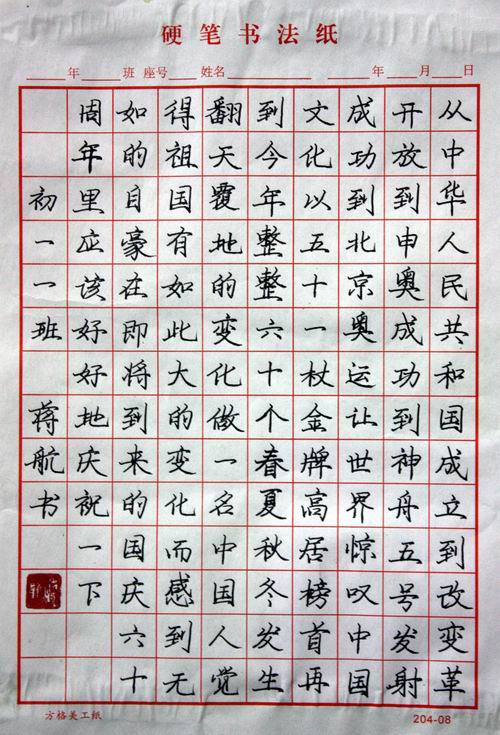 硬笔书法纸
____年____班 座号____ 姓名____________ ____年____月____日
从中华人民共和国成立到改变革
开放到申奥成功到神舟五号发射
成功到北京奥运让世界惊叹中国
文化以五十一杖金牌高居榜首再
到今年整整六十个春夏秋冬发生
翻天覆地的变化做一名中国人觉
得祖国有如此大的变化而感到无
如的自豪在即将到来的国庆六十
周年里应该好好地庆祝一下
初一一班 蒋航书
方格美工纸 204-08